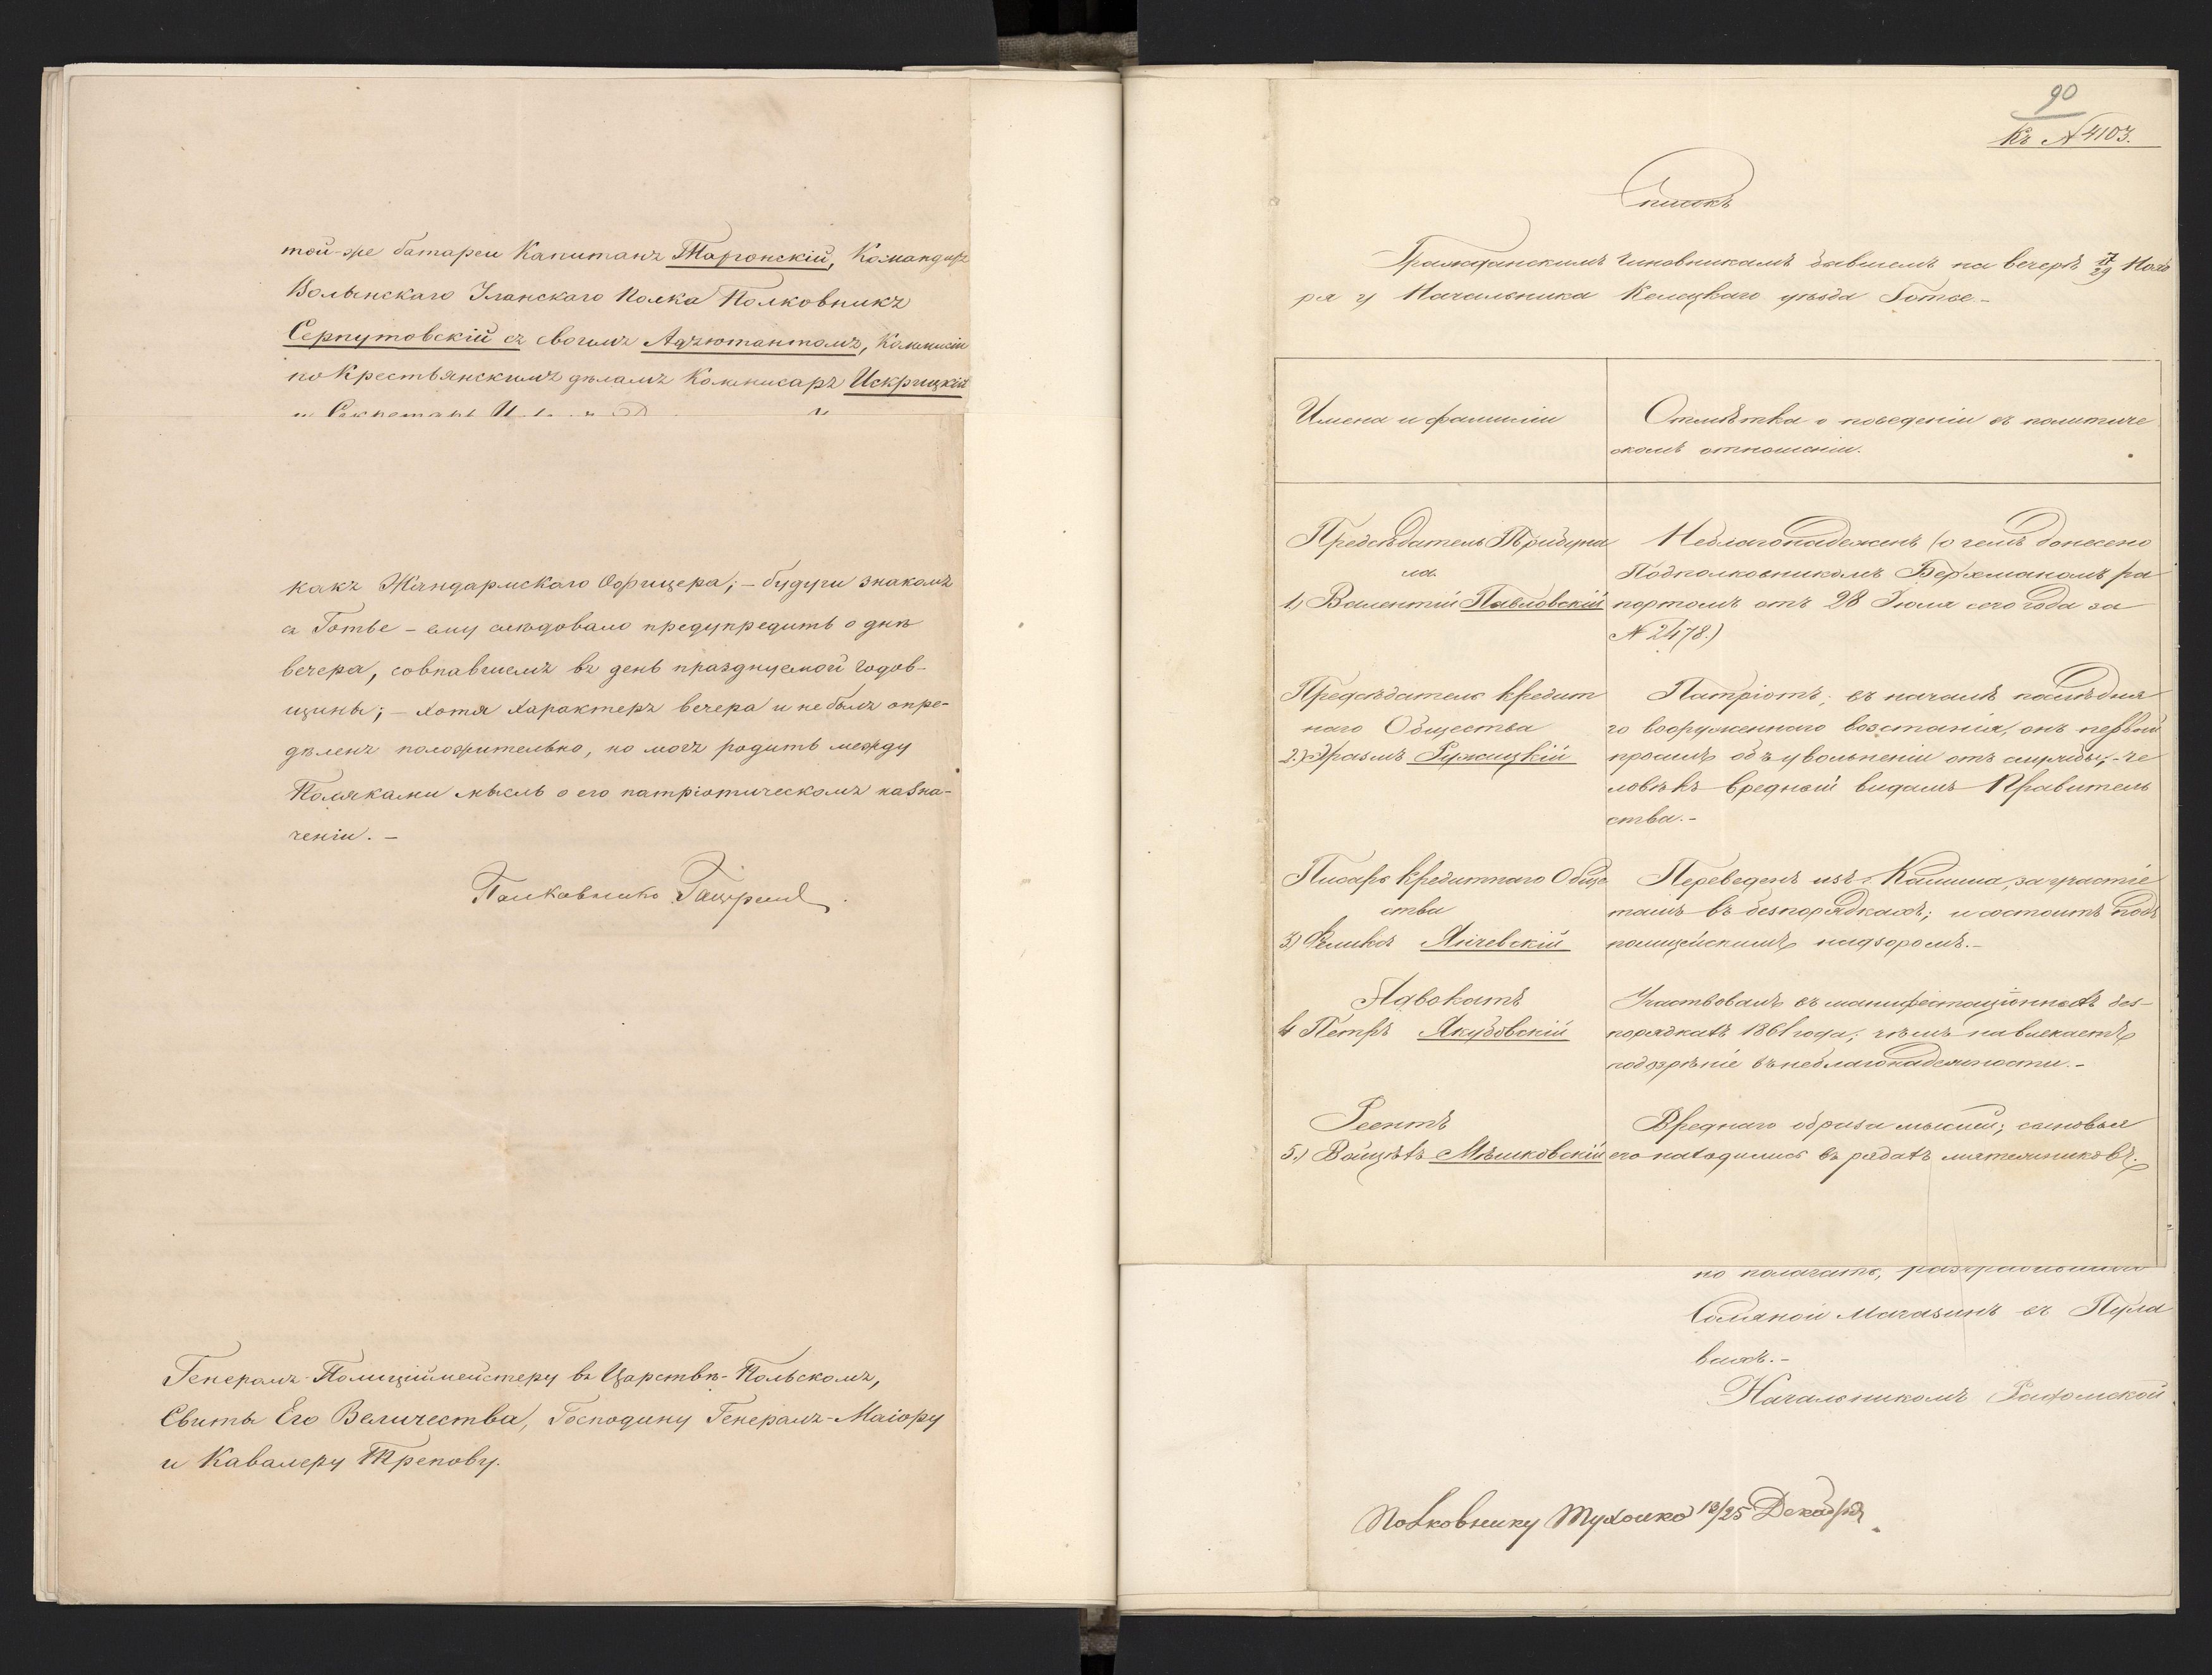 той-же батареи Капитанъ Таронскій, Командиръ
Волынскаго Уланскаго Полка Полковникъ
Серпутовскій съ своимъ Адъютантомъ, Коммисіи
по Крестьянскимъ дѣламъ Коммисаръ Искрицкій
и Секретарь
какъ Жандармскаго Офицера; – будучи знакомъ
съ Готье – ему слѣдовало предупредить о днѣ
вечера, совпавшемъ въ день празднуемой годов-
щины; – хотя характеръ вечера и не былъ опре-
дѣленъ положительно, но могъ родить между
Поляками мысль о его патріотическомъ назна-
ченіи. –
Полковникъ
Генералъ-Полиціймейстеру въ Царствѣ-Польскомъ,
Свиты Его Величества, Господину Генералъ-Маіору
и Кавалеру Трепову.
90
Къ № 4103.
Списокъ
Гражданскимъ Чиновникамъ бывшемъ на вечерѣ 17/29 Нояб
ря у Начальника Келецкаго уѣзда Готье –
Имена и фамиліи
Отмѣтка о поведеніи въ политиче
скомъ отношеніи.
Предсѣдатель Трибуна
ла
1) Валентій Павловскій
Неблагонадеженъ (о чемъ донесено
Подполковникомъ Берхманомъ ра
портомъ отъ 28 Іюля сего года за
№ 2478.)
Предсѣдатель кредит
наго Общества
2.) Эразмъ Ружицкій
Патріотъ; въ началѣ послѣдня
го вооруженнаго возстанія, онъ первый
просилъ объ увольненіи отъ службы; – че
ловѣкъ вредный видамъ Правитель
ства. –
Писарь кредитнаго Обще
ства
3) Феликсъ Яничевскій
Переведенъ изъ Калиша, за участіе
тамъ въ безпорядкахъ; и состоитъ подъ
полицейскимъ надзоромъ. –
Адвокатъ
4 Петръ Якубовскій
Участвовалъ въ манифестаціонныхъ без-
порядкахъ 1861 года; чѣмъ навлекаетъ
подозрѣніе въ неблагонадежности. –
Реентъ
5.) Войцѣхъ Мѣшковскій
Вреднаго образа мыслей; сыновья
его находились въ рядахъ мятежниковъ.
но полагать,
Соляной Магазинъ въ Пула
вахъ. –
Начальникомъ Радомской
Полковнику Тухолко 13/25 Декабря.